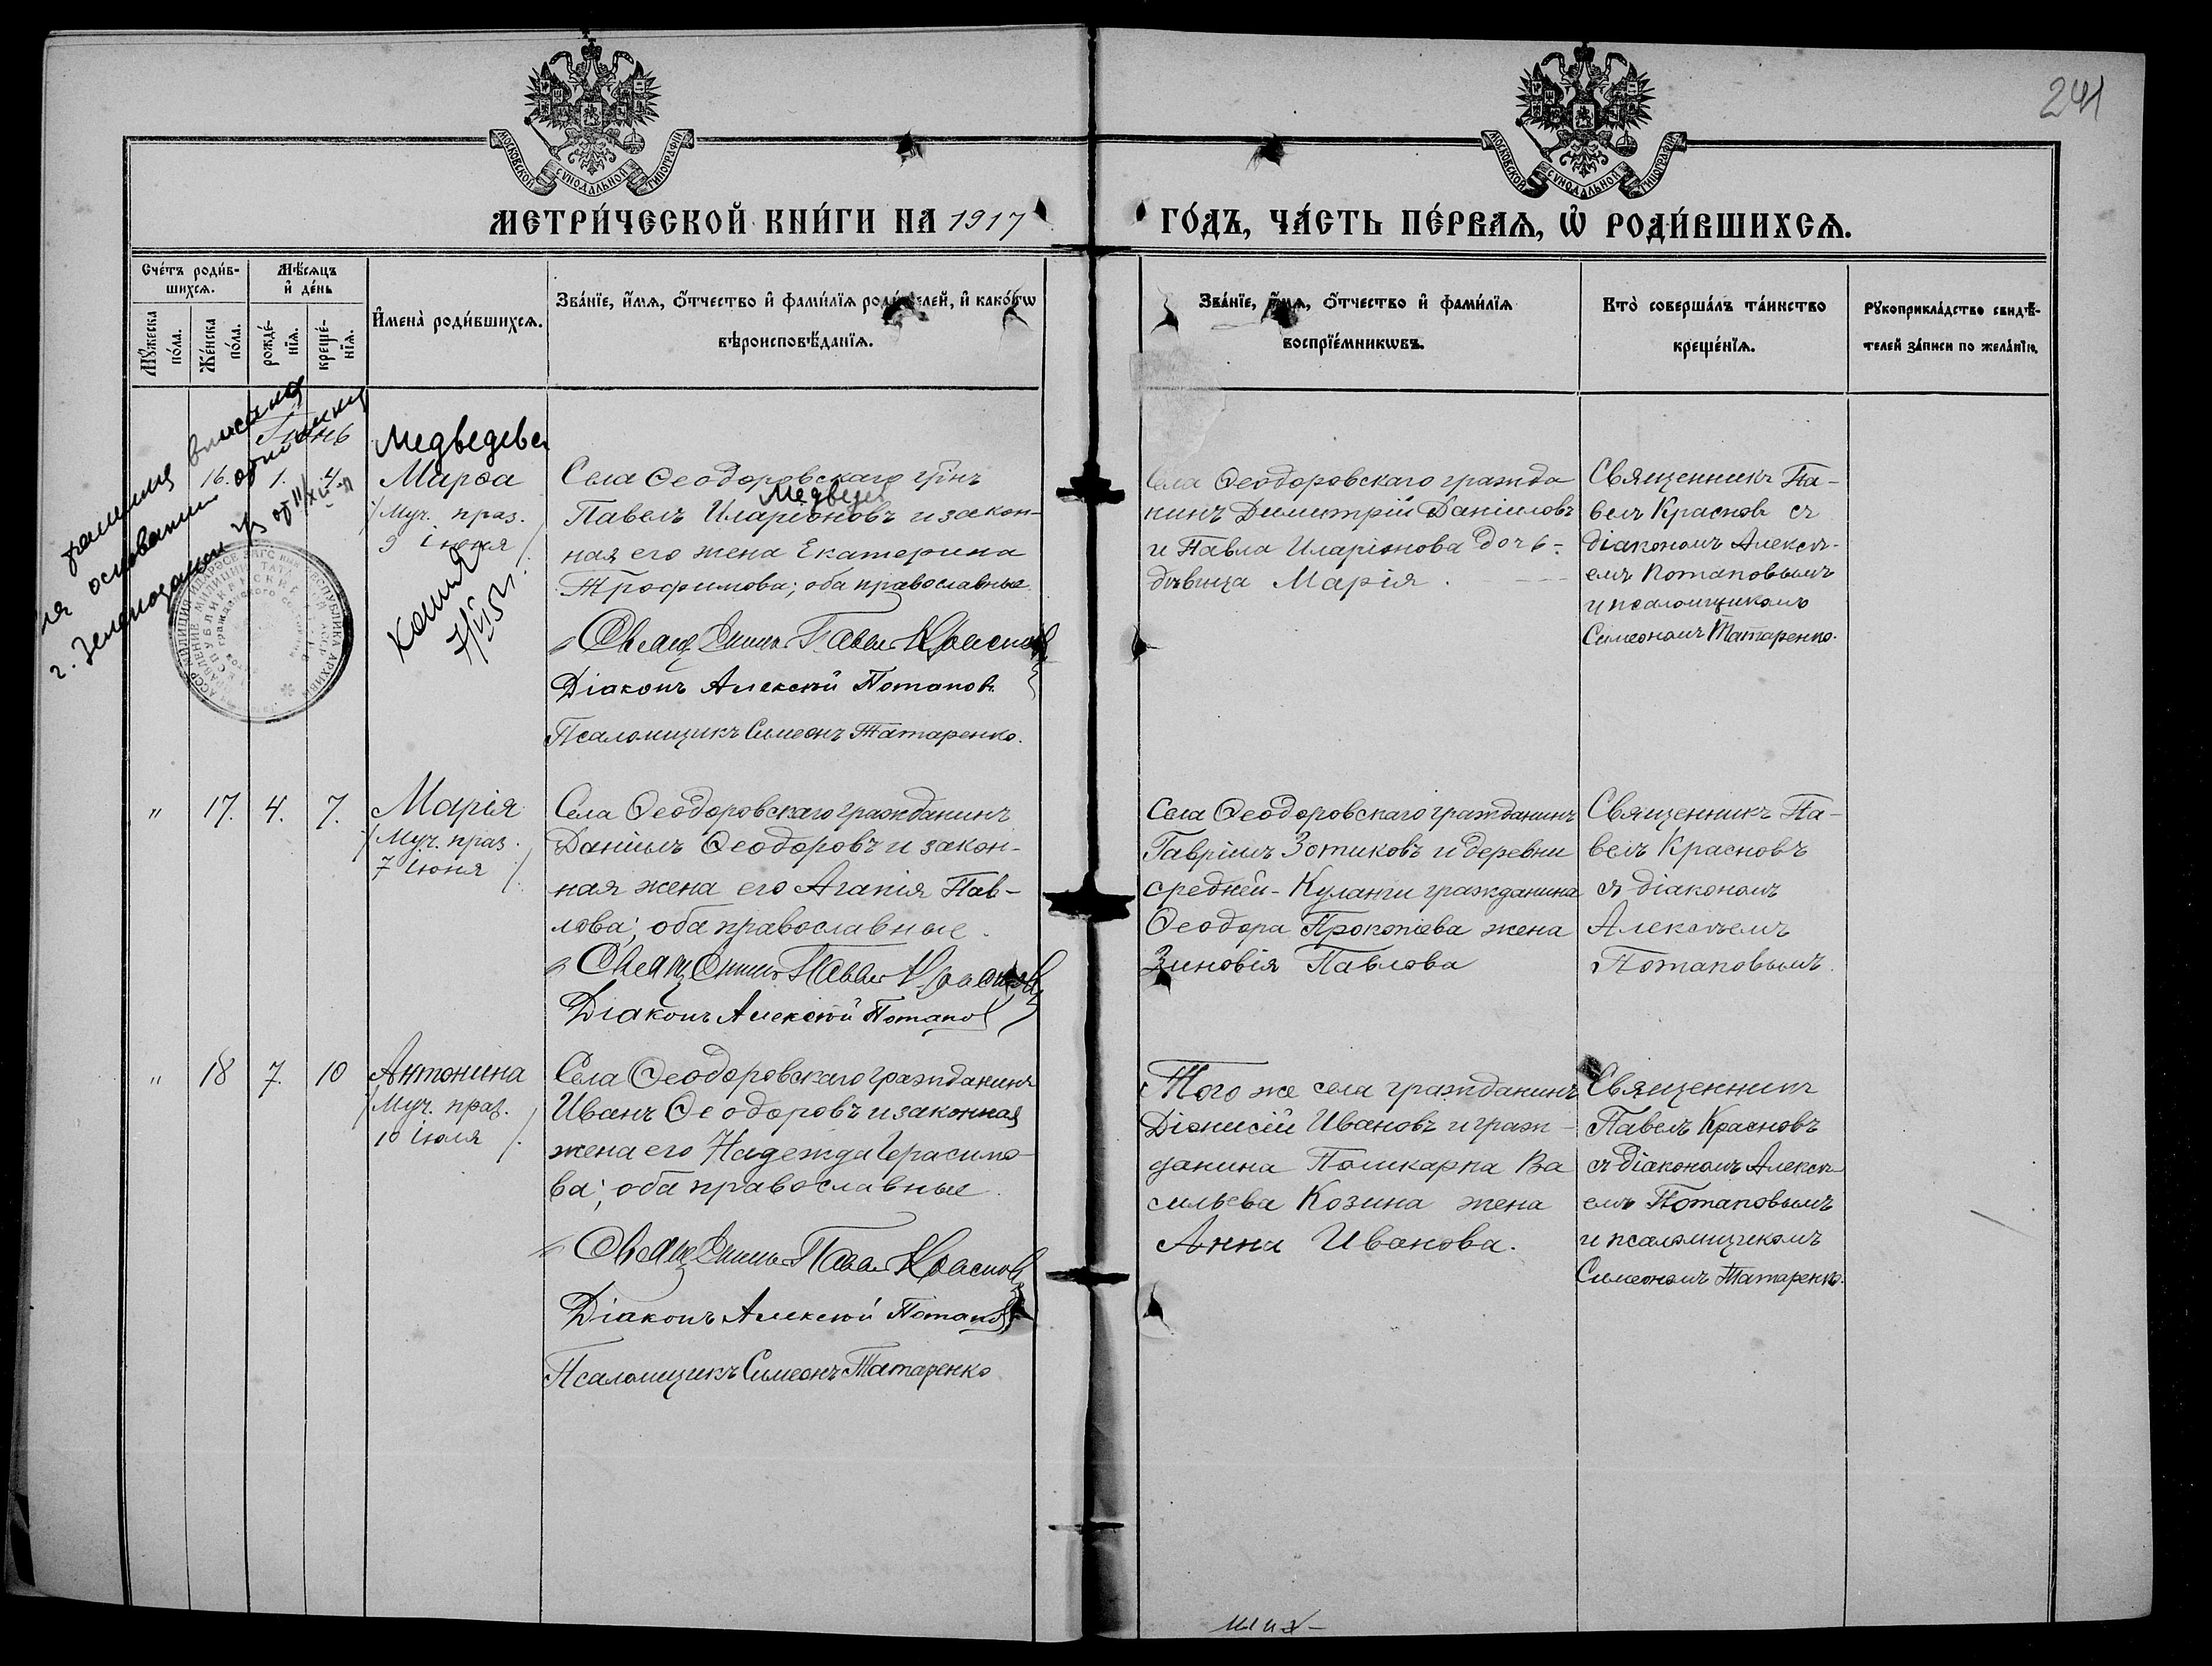 241
МОСКОВСКОЙ СУНОДАЛЬНОЙ ТИПОГРАФІИ
МОСКОВСКОЙ СУНОДАЛЬНОЙ ТИПОГРАФІИ
МЕТРИ́ЧЕСКОЙ КНИ́ГИ НА 1917
ГО́ДЪ, ЧА́СТЬ ПЕ́РВАѦ, Ѡ҆ РОДИ́ВШИХСѦ.
Сче́тъ роди́в-
шихсѧ.
Мѣ́сѧцъ
и҆ де́нь
Мꙋ́жеска
по́ла.
Же́нска
по́ла.
рожде́-
нїѧ.
креще́-
нїѧ.
И҆мена̀ роди́вшихсѧ.
Зва́нїе, и҆́мѧ, ѻ҆́тчество и҆ фами́лїѧ роди́телей, и҆ како́гѡ
вѣроисповѣ́данїѧ.
Зва́нїе, и҆́мѧ, ѻ҆́тчество и҆ фами́лїѧ
воспрїе́мникѡвъ.
Кто̀ соверша́лъ та́инство
креще́нїѧ.
Рꙋкоприкла́дство свидѣ́-
телей за́писи по жела́нїю.
фамилия вписана
на основании
г. Зеленодольск
Іюнь
16. 1. 4.
Медведева
Марѳа
/Муч. праз.
9 іюня /.
Копия
Села Ѳеодоровскаго гр-нъ
Медведев
Павелъ Иларіоновъ и закон-
ная его жена Екатерина
Трофимова; оба православные.
Священникъ Павелъ Красновъ
Діаконъ Алексѣй Потаповъ
Псаломщикъ Симеонъ Татаренко.
Села Ѳеодоровскаго гражда
нинъ Димитрій Даніиловъ
и Павла Иларіонова дочь-
дѣвица Марія.
Священникъ Па-
велъ Красновъ съ
діакономъ Алексѣ-
емъ Потаповымъ
и псаломщикомъ
Симеономъ Татаренко.
" 17. 4. 7.
Марія
/Муч. праз.
7 іюня /.
Села Ѳеодоровскаго гражданинъ
Даніилъ Ѳеодоровъ и закон-
ная жена его Агапія Пав-
лова; оба православные.
Священникъ Павелъ Красновъ
Діаконъ Алексѣй Потаповъ
Села Ѳеодоровскаго гражданинъ
Гавріилъ Зотиковъ и деревни
средней-Куланги гражданина
Ѳеодора Прокопіева жена
Зиновія Павлова
Священникъ Па-
велъ Красновъ
съ діакономъ
Алексѣемъ
Потаповымъ.
" 18 7. 10
Антонина
/Муч. праз.
10 іюля /.
Села Ѳеодоровскаго гражданинъ
Иванъ Ѳеодоровъ и законная
жена его Надежда Герасимо-
ва; оба православные.
Священникъ Павелъ Красновъ
Діаконъ Алексѣй Потаповъ
Псаломщикъ Симеонъ Татаренко
Того же села гражданинъ
Діонисій Ивановъ и граж-
данина Поликарпа Ва
сильева Козина жена
Анна Иванова.
Священникъ
Павелъ Красновъ
съ діакономъ Алексѣ-
емъ Потаповымъ
и псаломщикомъ
Симеономъ Татаренко.